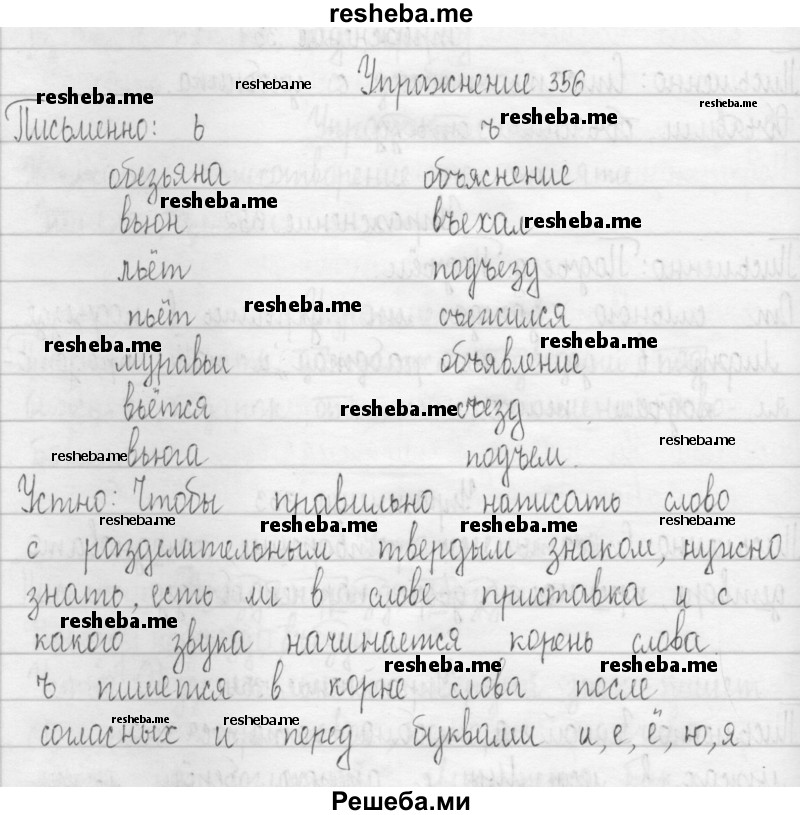 resheba.me
Упражнение 356
resheba.me resheba.me resheba.me
Письменно: ь ъ resheba.me
обезьяна объяснение
resheba.me
вьюн въехал resheba.me
льёт подъезд
пьёт resheba.me съежился
resheba.me муравьи объявление resheba.me
вьётся resheba.me съезд
resheba.me вьюга подъем. resheba.me
Устно: Чтобы правильно написать слово
resheba.me resheba.me resheba.me resheba.me
с разделительным твердым знаком, нужно
знать, есть ли в слове приставка и с
resheba.me
какого звука начинается корень слова
resheba.me resheba.me
ь пишется в корне слова после
resheba.me resheba.me
согласных и перед буквами и, е, ё, ю, я
Решеба.ми